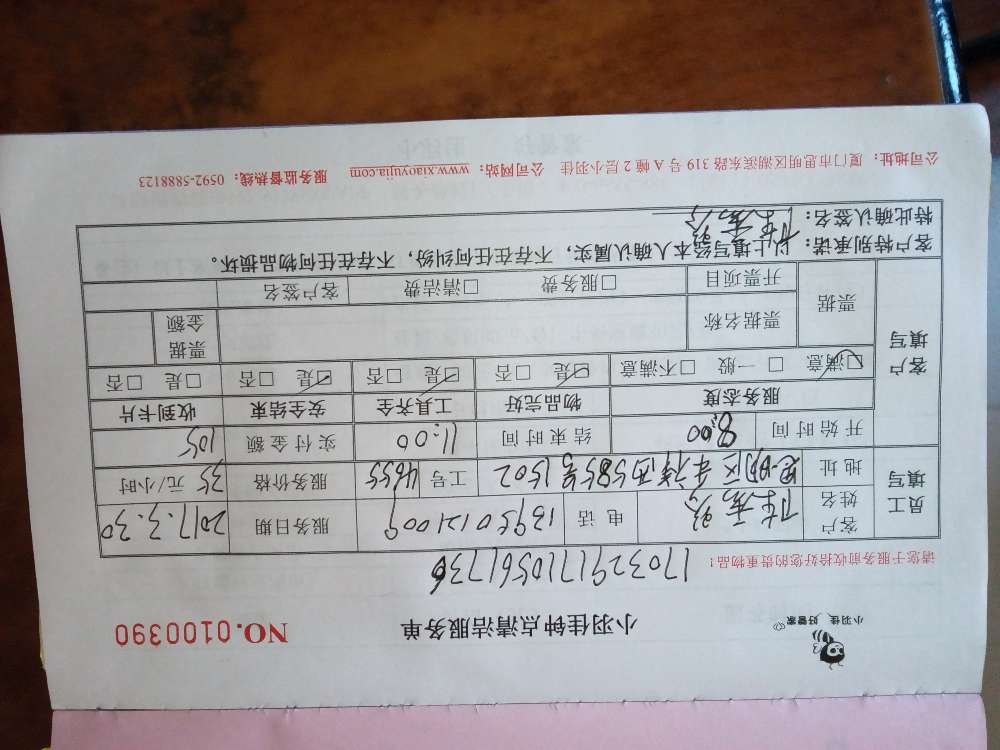 小羽佳 好管家
小羽佳钟点清洁服务单
NO.0100390
请您于服务前收拾好您的贵重物品!
1703291710561736
员工填写
客户姓名 电话 13950121009 服务日期 2017.3.30
地址 思明区 585号1502 工号 4655 服务价格 35 元/小时
客户填写
开始时间 8:00 结束时间 11:00 实付金额 105
服务态度 物品完好 工具齐全 安全结束 收到卡片
☑满意 □一般 □不满意 ☑是 □否 ☑是 □否 ☑是 □否 □是 □否
票据 票据名称 票据金额
开票项目 □服务费 □清洁费 客户签名
客户特别承诺:以上填写经本人确认属实,不存在任何纠纷,不存在任何物品损坏。
特此确认签名:
公司地址:厦门市思明区湖滨东路 319 号 A 幢 2 层小羽佳 公司网站:www.xiaoyujia.com 服务监督热线:0592-5888123